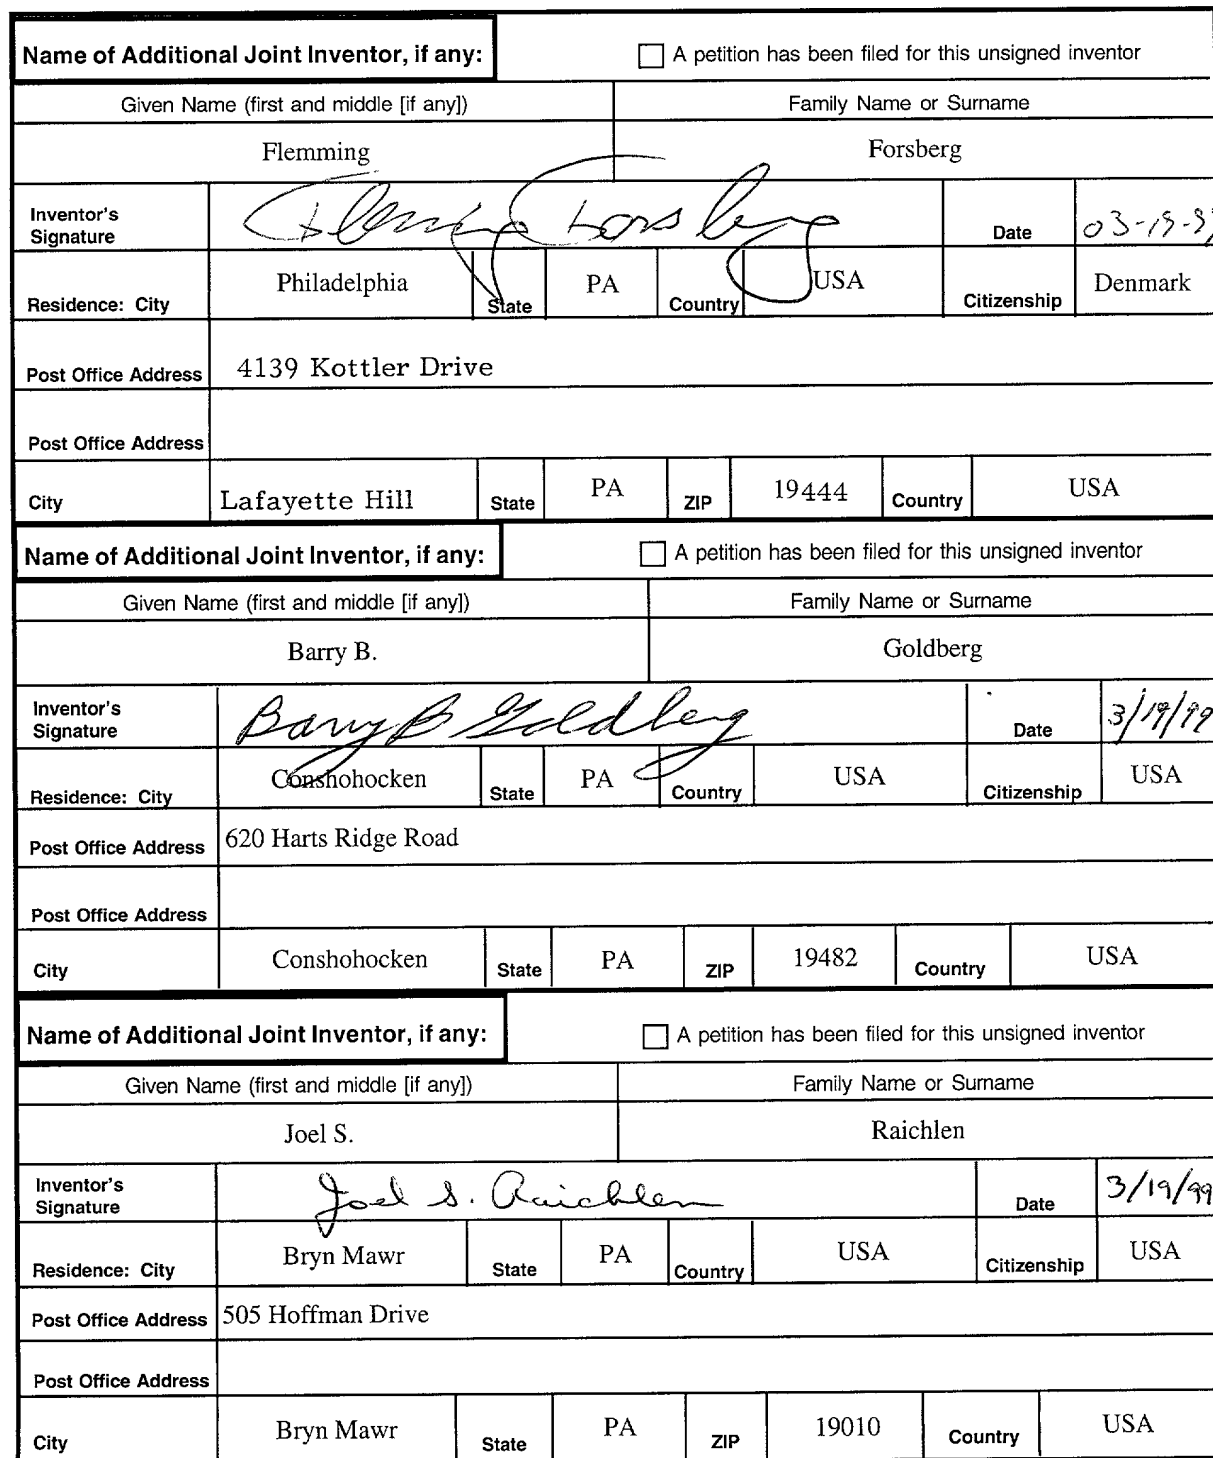 Name of Additional Joint Inventor, if any: A petition has been filed for this unsigned inventor
Given Name (first and middle [if any]) Family Name or Surname
Flemming Forsberg
Inventor's Signature Flemming Forsberg Date 03-19-99
Residence: City Philadelphia State PA Country USA Citizenship Denmark
Post Office Address 4139 Kottler Drive
Post Office Address
City Lafayette Hill State PA ZIP 19444 Country USA
Name of Additional Joint Inventor, if any: A petition has been filed for this unsigned inventor
Given Name (first and middle [if any]) Family Name or Surname
Barry B. Goldberg
Inventor's Signature Barry B Goldberg Date 3/19/99
Residence: City Conshohocken State PA Country USA Citizenship USA
Post Office Address 620 Harts Ridge Road
Post Office Address
City Conshohocken State PA ZIP 19482 Country USA
Name of Additional Joint Inventor, if any: A petition has been filed for this unsigned inventor
Given Name (first and middle [if any]) Family Name or Surname
Joel S. Raichlen
Inventor's Signature Joel S. Raichlen Date 3/19/99
Residence: City Bryn Mawr State PA Country USA Citizenship USA
Post Office Address 505 Hoffman Drive
Post Office Address
City Bryn Mawr State PA ZIP 19010 Country USA